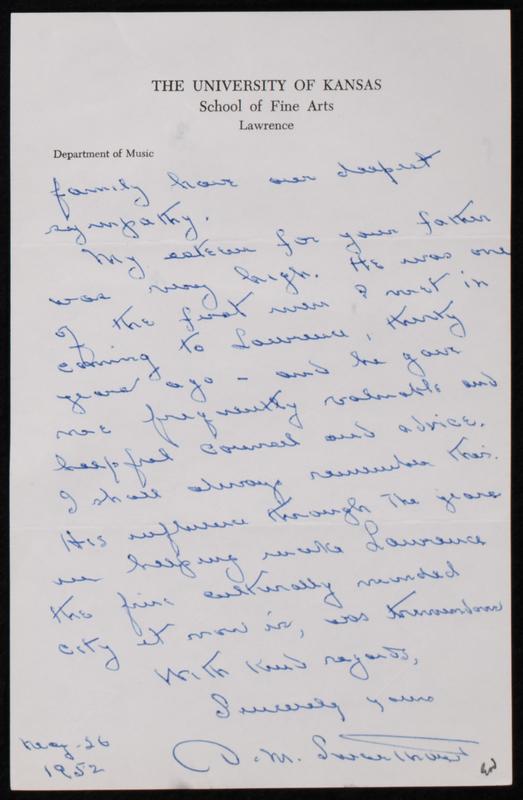 THE UNIVERSITY OF KANSAS
School of Fine Arts
Lawrence
Department of Music
family have our deepest
sympathy.
My esteem for your father
was very high. He was one
of the first men I met in
coming to Lawrence, thirty
years ago - and he gave
me frequently valuable and
helpful counsel and advice.
I shall always remember this.
His influence through the years
in helping make Lawrence
the fine culturally minded
city it now is, was tremendous
With kind regards,
Sincerely yours
D. M. Swarthout
May-26
1952